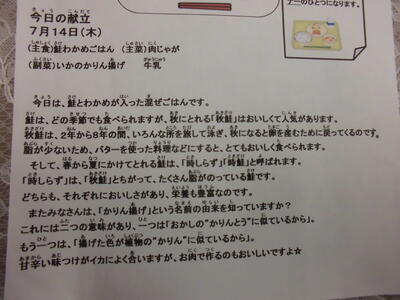 ナーのひとつになります。
今日の献立
7月14日(木)
(主食)鮭わかめごはん (主菜)肉じゃが
(副菜)いかのかりん揚げ 牛乳
今日は、鮭とわかめが入った混ぜごはんです。
鮭は、どの季節でも食べられますが、秋にとれる「秋鮭」はおいしくて人気があります。
秋鮭は、2年から8年の間、いろんな所を旅して泳ぎ、秋になると卵を産むために戻ってくるのです。
脂が少ないため、バターを使った料理などにすると、とてもおいしく食べられます。
そして、春から夏にかけてとれる鮭は、「時しらず」「時鮭」と呼ばれます。
「時しらず」は、「秋鮭」とちがって、たくさん脂がのっている鮭です。
どちらも、それぞれにおいしさがあり、栄養も豊富なのです。
またみなさんは、「かりん揚げ」という名前の由来を知っていますか?
これには二つの意味があり、一つは「おかしの"かりんとう"に似ているから」。
もう一つは、「揚げた色が植物の"かりん"に似ているから」。
甘辛い味つけがイカによく合いますが、お肉で作るのもおいしいですよ☆